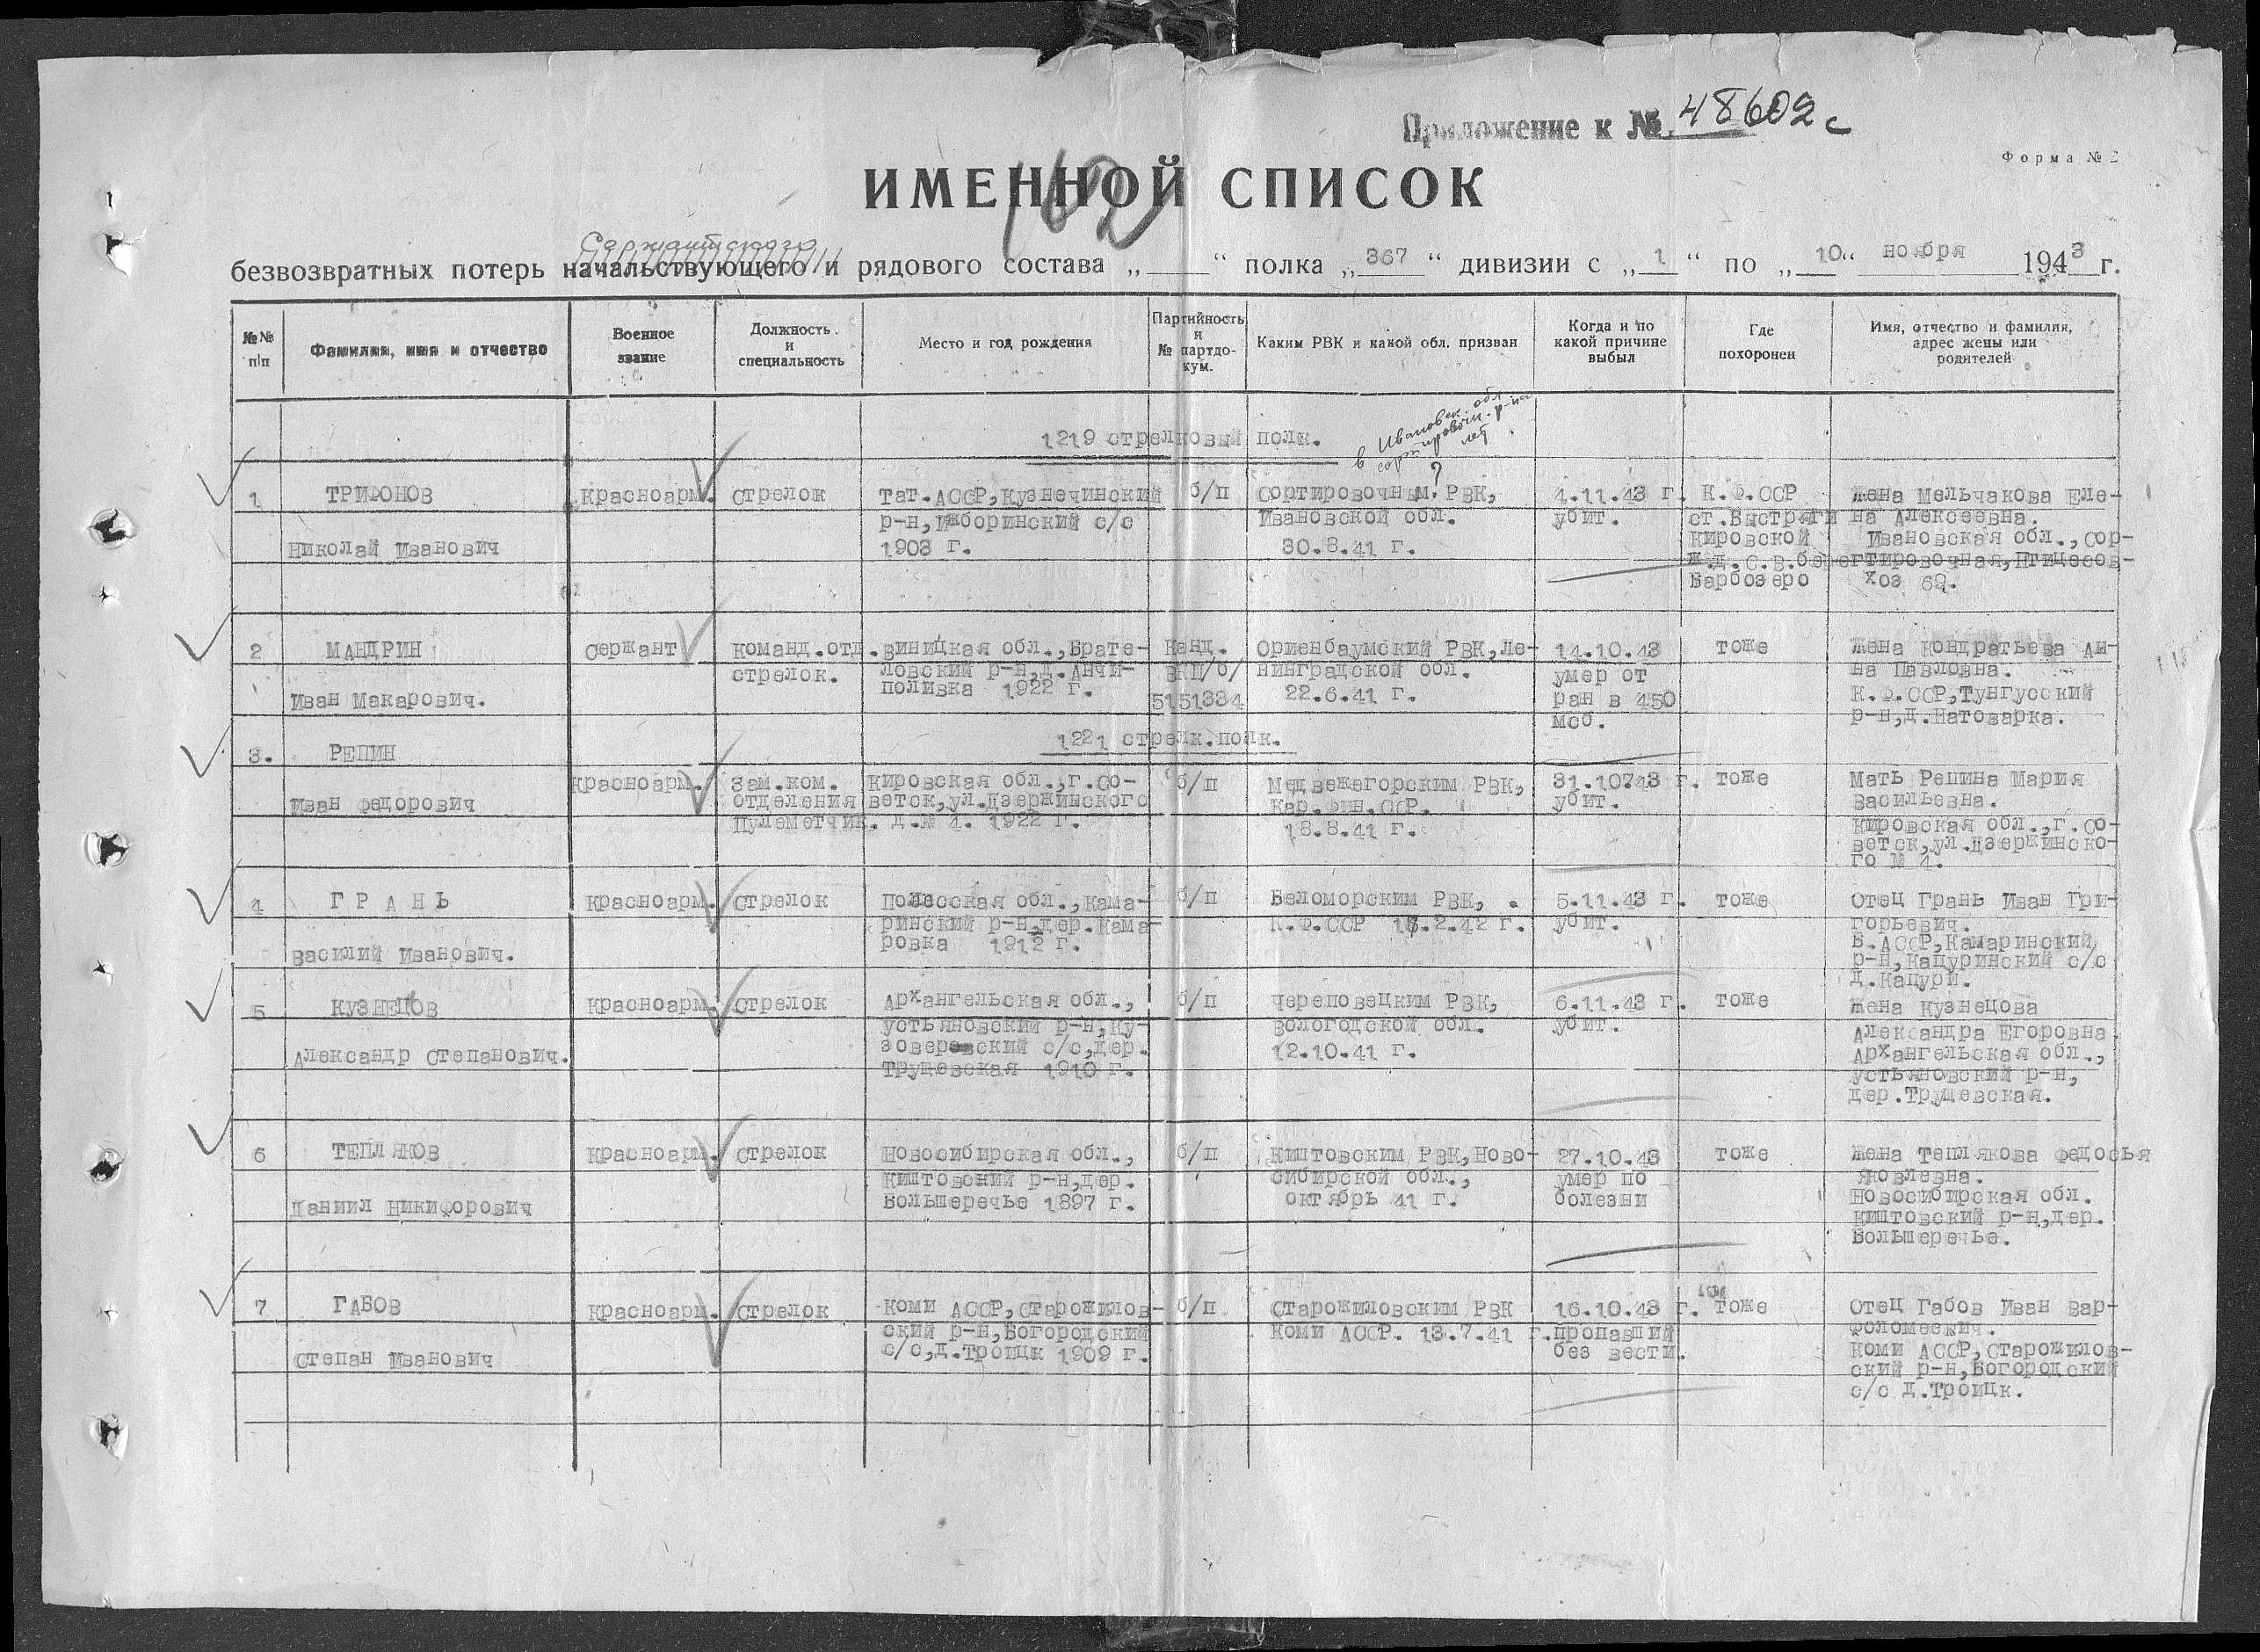 Приложение к № 48602с
Форма № 2
ИМЕННОЙ СПИСОК
162
Сержантского
безвозвратных потерь начальствующего и рядового состава „ “ полка „ 367 “ дивизии с „ 1 “ по „ 10 “ ноября 1943 г.
№№ п/п
Фамилия, имя и отчество
Военное звание
Должность и специальность
Место и год рождения
Партийность и № партдокум.
Каким РВК и какой обл. призван
Когда и по какой причине выбыл
Где похоронен
Имя, отчество и фамилия, адрес жены или родителей
в Ивановск. обл
сортировочн. р-на
нет
?
1219 стрелковый полк.
1
ТРИФОНОВ
Николай Иванович
Красноарм.
Стрелок
Тат.АССР,Кузнечинский
р-н,Ижборинский с/с
1903 г.
б/п
Сортировочным РВК,
Ивановской обл.
30.8.41 г.
4.11.43 г.
убит.
К.Ф.ССР
ст.Быстряги
Кировской
ж.д.С.В.берег
Варбозеро
Жена Мельчакова Еле-
на Алексеевна.
Ивановская обл.,Сор-
тировочная,Птицесов-
хоз 69.
2
МАНДРИН
Иван Макарович.
Сержант
Команд.отд.
стрелок.
Виницкая обл.,Брате-
ловский р-н,д.Анчи-
поливка 1922 г.
Канд.
ВКП/б/
5151334
Ориенбаумский РВК,Ле-
нинградской обл.
22.6.41 г.
14.10.43
умер от
ран в 450
мсб.
тоже
Жена Кондратьева Ан-
на Павловна.
К.Ф.ССР,Тунгусский
р-н,д.Натоварка.
1221 стрелк.полк.
3.
РЕПИН
Иван Федорович
Красноарм.
Зам.ком.
отделения
Пулеметчик.
Кировская обл.,г.Со-
ветск,ул.Дзержинского
д.№ 4. 1922 г.
б/п
Медвежегорским РВК,
Кар.Фин.ССР.
18.8.41 г.
31.10.43 г.
убит.
тоже
Мать Репина Мария
Васильевна.
Кировская обл.,г.Со-
ветск,ул.Дзержинско-
го № 4.
4
ГРАНЬ
Василий Иванович.
Красноарм.
Стрелок
Полесская обл.,Кама-
ринский р-н,дер.Кама-
ровка 1912 г.
б/п
Беломорским РВК,
К.Ф.ССР 16.2.42 г.
5.11.43 г.
убит.
тоже
Отец Грань Иван Гри-
горьевич.
Б.АССР,Камаринский
р-н,Кацуринский с/с
д.Кацури.
5
КУЗНЕЦОВ
Александр Степанович.
Красноарм.
Стрелок
Архангельская обл.,
Устьяновский р-н,Ку-
зоверевский с/с,дер.
Трущевская 1910 г.
б/п
Череповецким РВК,
Вологодской обл.
12.10.41 г.
6.11.43 г.
убит.
тоже
Жена Кузнецова
Александра Егоровна
Архангельская обл.,
Устьяновский р-н,
дер.Трущевская.
6
ТЕПЛЯКОВ
Даниил Никифорович
Красноарм.
Стрелок
Новосибирская обл.,
Киштовский р-н,дер.
Большеречье 1897 г.
б/п
Киштовским РВК,Ново-
сибирской обл.,
октябрь 41 г.
27.10.43
умер по
болезни
тоже
Жена Теплякова Федосья
Яковлевна.
Новосибирская обл.
Киштовский р-н,дер.
Большеречье.
7
ГАБОВ
Степан Иванович
Красноарм.
Стрелок
Коми АССР,Старожилов-
ский р-н,Богородский
с/с,д.Троицк 1909 г.
б/п
Старожиловским РВК
Коми АССР. 13.7.41 г.
16.10.43 г.
пропавший
без вести.
тоже
Отец Габов Иван Вар-
фоломеевич.
Коми АССР,Старожилов-
ский р-н,Богородский
с/с д.Троицк.